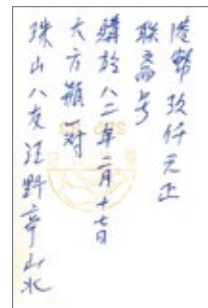 港幣玖仟元正
联斋号
購於八二年二月十七日
大方瓶一对
珠山八友汪野亭山水